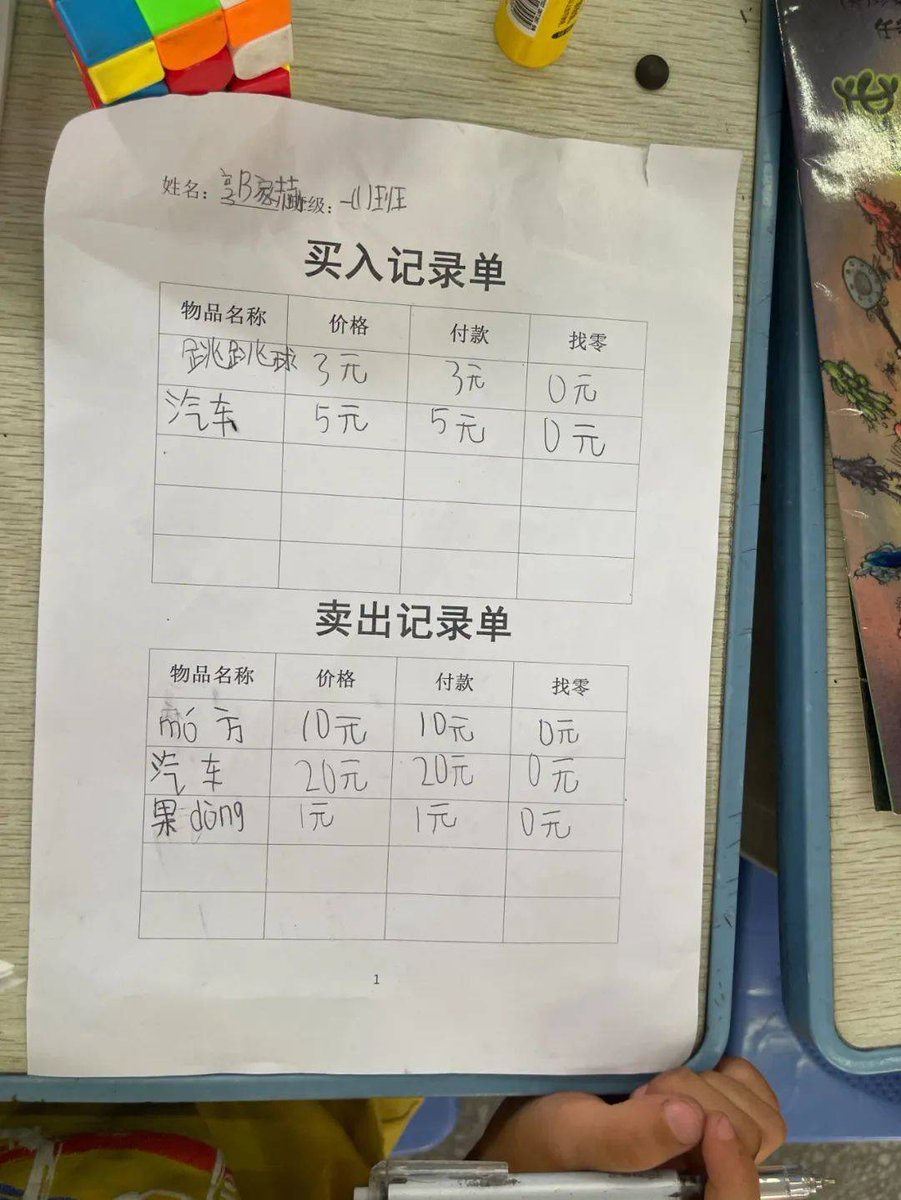 姓名：郭家喆 班级：一(1)班
买入记录单
物品名称 价格 付款 找零
跳跳球 3元 3元 0元
汽车 5元 5元 0元
卖出记录单
物品名称 价格 付款 找零
mó方 10元 10元 0元
汽车 20元 20元 0元
果dòng 1元 1元 0元
1